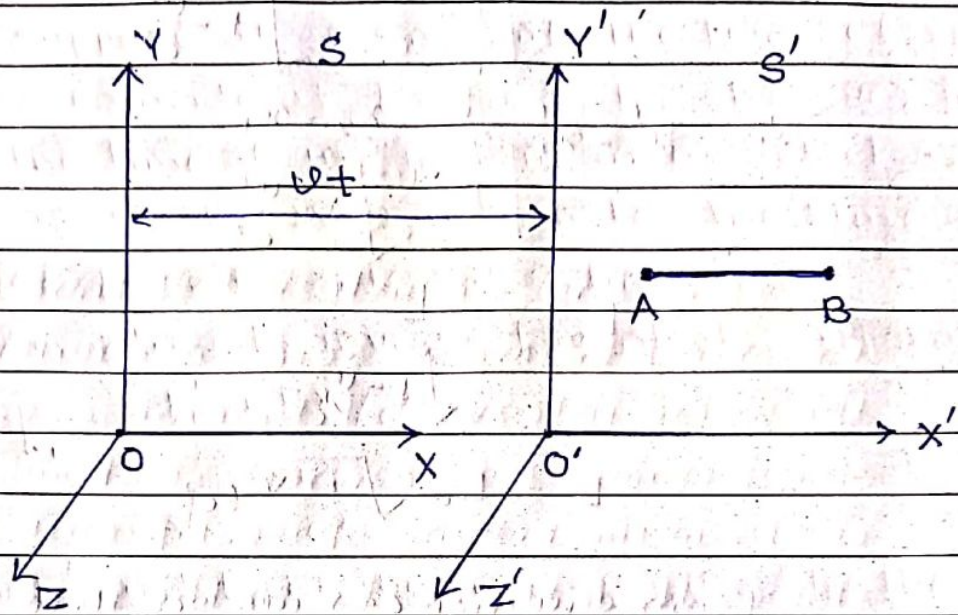 Y S Y' S'
vt
A B
O X O' X'
Z Z'